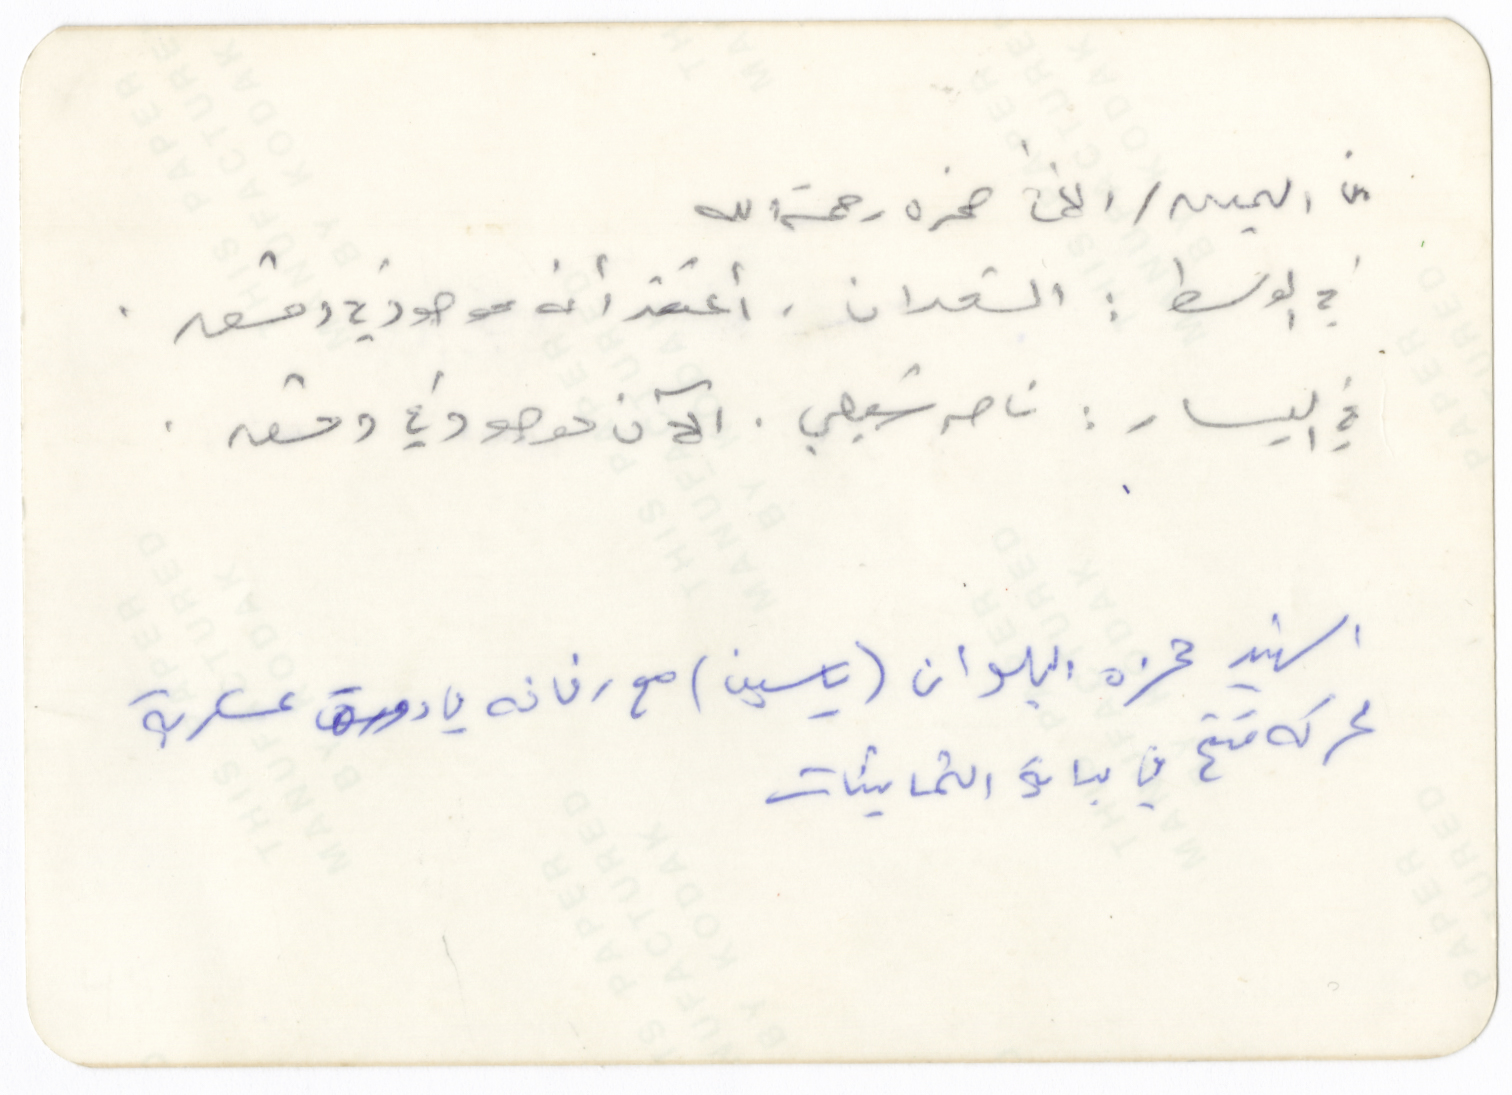 من اليمين / الأخ حمزه رحمة الله
في الوسط : السعدان ، أعتقد أنه موجود في دمشق .
في اليسار : ناصر شبطيني . الآن موجود في دمشق .
الشهيد حمزه البلوان (ياسين) مع رفاقه في دورة عسكرية
لحركة فتح في بداية الثمانينات
THIS PAPER
MANUFACTURED
BY KODAK